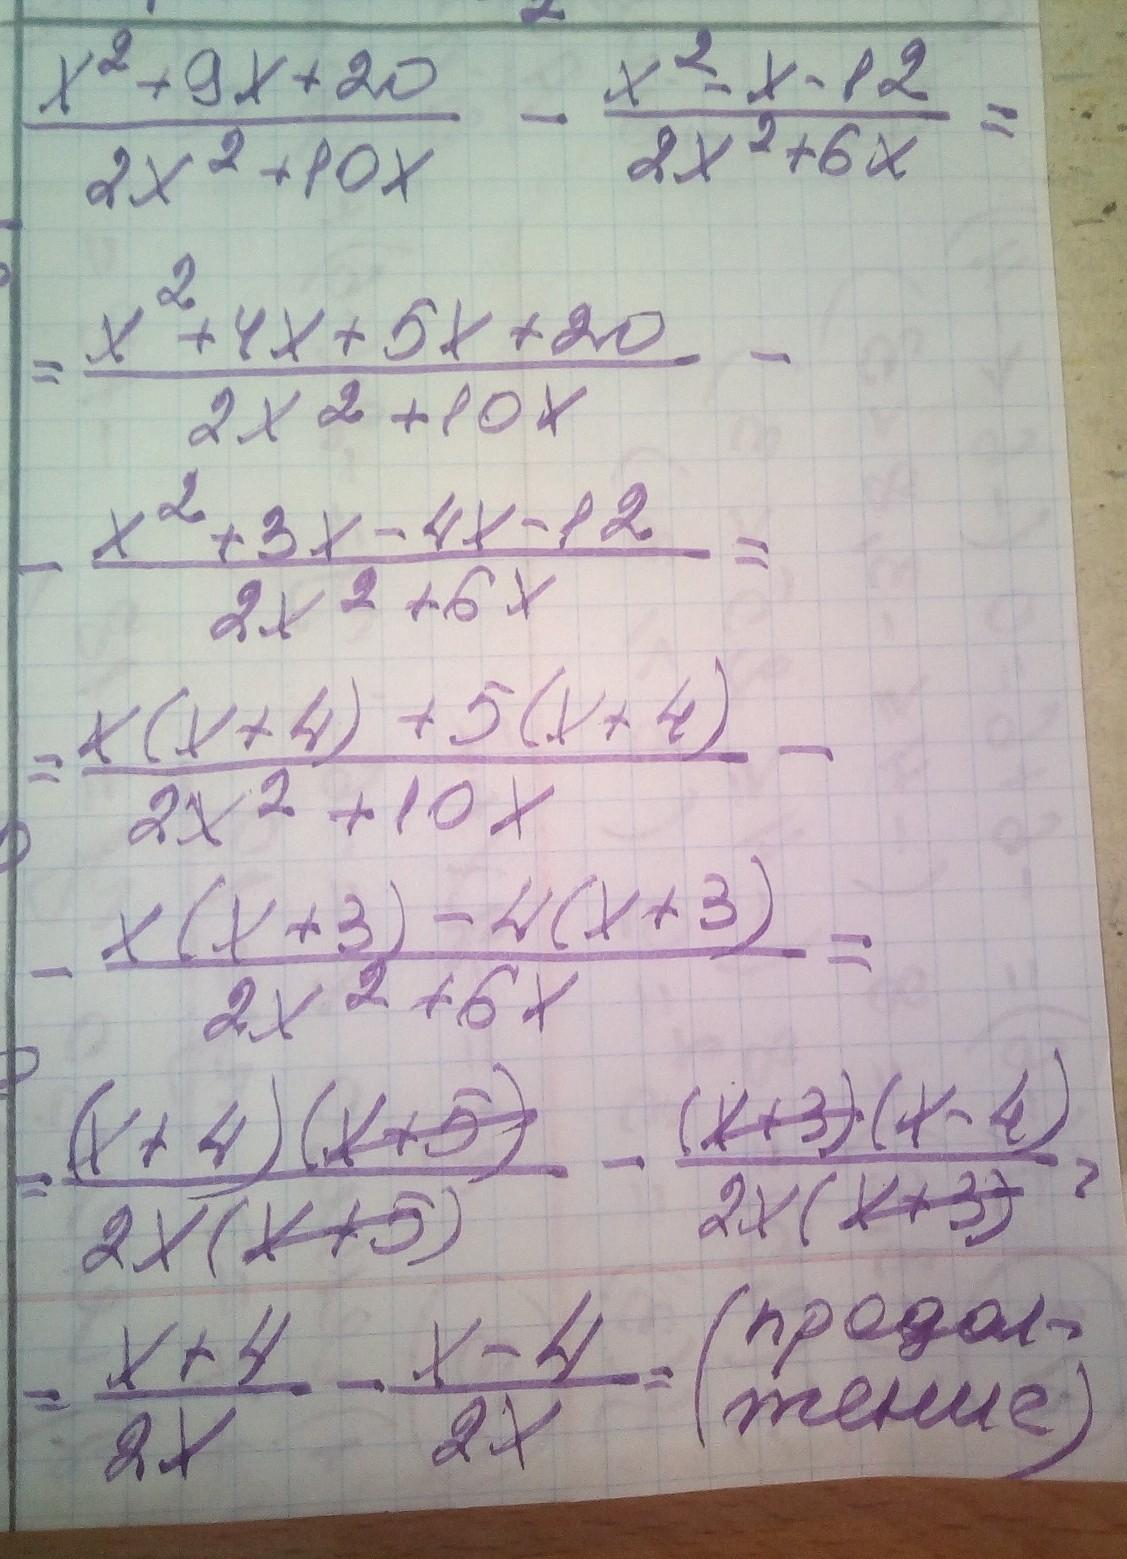 x² + 9x + 20 / 2x² + 10x - x² - x - 12 / 2x² + 6x =
= x² + 4x + 5x + 20 / 2x² + 10x -
- x² + 3x - 4x - 12 / 2x² + 6x =
= x(x + 4) + 5(x + 4) / 2x² + 10x -
- x(x + 3) - 4(x + 3) / 2x² + 6x =
= (x + 4)(x + 5) / 2x(x + 5) - (x + 3)(x - 4) / 2x(x + 3) =
= x + 4 / 2x - x - 4 / 2x = (продол-
жение)